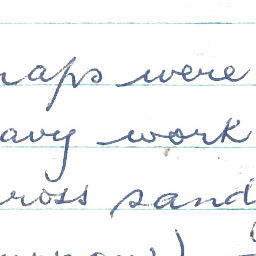 raps were
avy work
ross sand